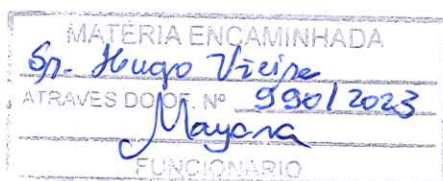 MATÉRIA ENCAMINHADA
Sr. Hugo Vieira
ATRAVES DO OF. Nº 990/2023
Mayara
FUNCIONÁRIO